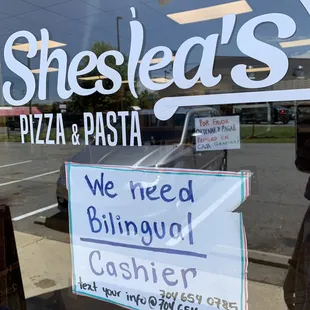 Sheslea's
PIZZA & PASTA
POR FAVOR
We need
Bilingual
Cashier
text your info @ 704 654 0785